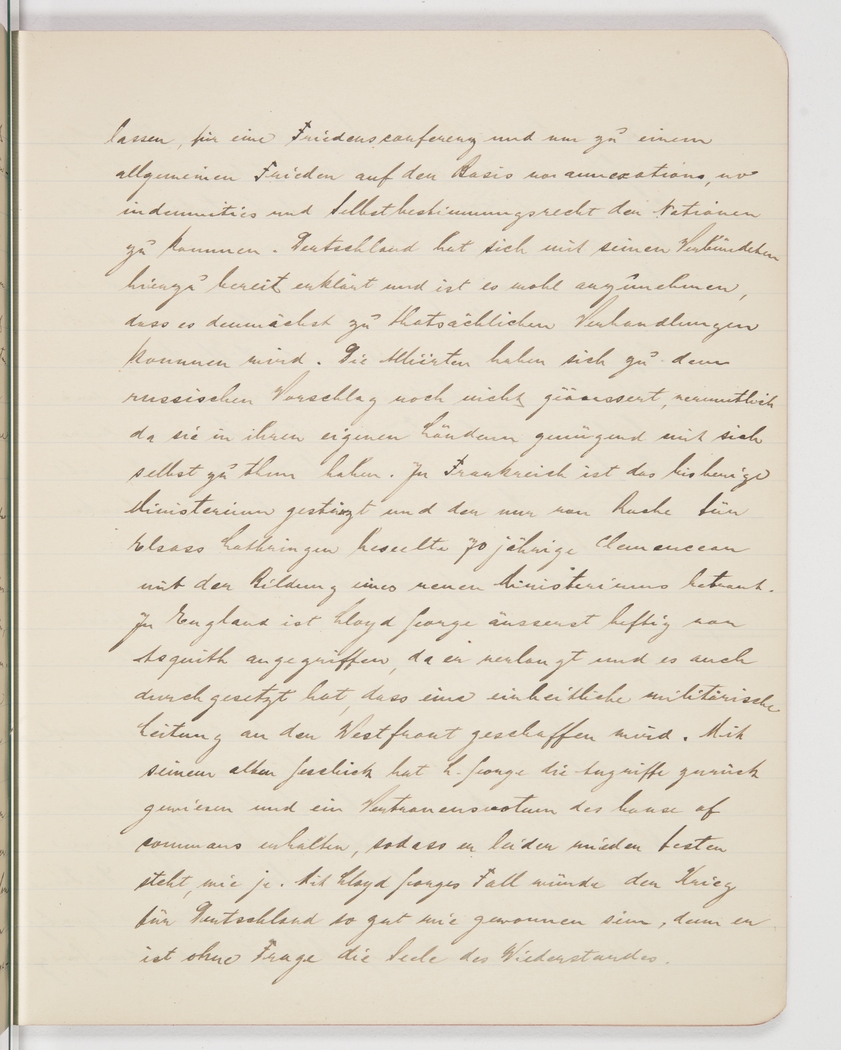 lassen, für eine Friedensconferenz und um zu einem
allgemeinen Frieden auf der Basis von annexations, no
indemnities und Selbstbestimmungsrecht der Nationen
zu kommen. Deutschland hat sich mit seinen Verbündeten
hierzu bereit erklärt und ist es wohl anzunehmen,
dass es demnächst zu thatsächlichen Verhandlungen
kommen wird. Die Alliirten haben sich zu dem
russischen Vorschlag noch nicht geäussert, vermutlich
da sie in ihren eigenen Ländern genügend mit sich
selbst zu thun haben. In Frankreich ist das bisherige
Ministerium gestürzt und der nur von Rache für
Elsass Lothringen beseelte 70 jährige Clemenceau
mit der Bildung eines neuen Ministeriums betraut.
In England ist Lloyd George äusserst heftig von
Asquith angegriffen, da er verlangt und es auch
durchgesetzt hat, dass eine einheitliche militärische
Leitung an der Westfront geschaffen wird. Mit
seinem alten Geschick hat L. George die Angriffe zurück
gewiesen und ein Vertrauensvotum des house of
commons erhalten, sodass er leider wieder fester
steht, wie je. Mit Lloyd Georges Fall würde der Krieg
für Deutschland so gut wie gewonnen sein, denn er
ist ohne Frage die Seele des Wiederstandes.